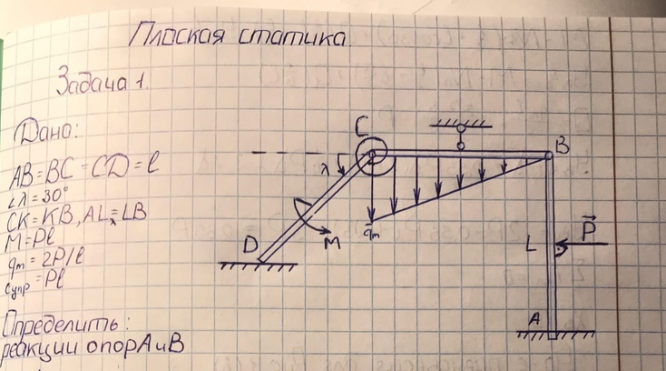 Плоская статика
Задача 1.
Дано:
AB=BC=CD=l
∠λ=30°
CK=KB, AL=LB
M=Pl
qm=2P/l
Cупр=Pl
Определить:
реакции опор A и B
C
B
λ
D
M
qm
L
P
A